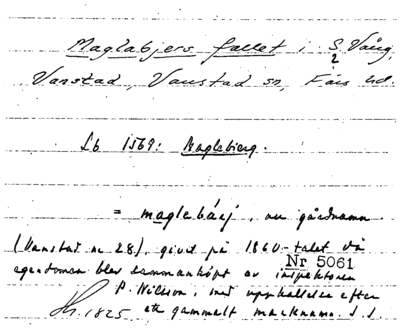 Maglabjers fallet i S. Vång,
2
Vanstad, Vanstad sn, Färs hd.
Lb 1569: Maglebierg.
= maglebárj, nu gårdnamn
(Vanstad nr 28), givet på 1860-talet då
Nr 5061
egendomen blev sammanköpt av inspektoren
P. Nilsson, med uppkallelse efter
1825 ett gammalt marknamn